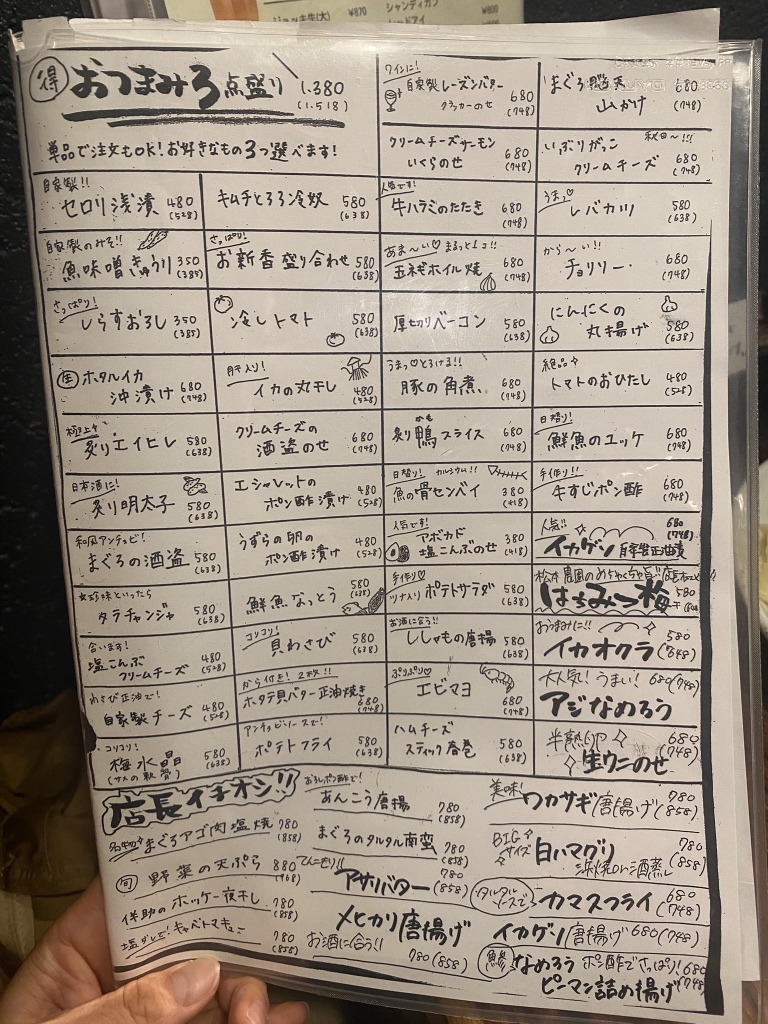 ジョッキ生(大) ¥870
シャンディガフ ¥800
レッドアイ ¥800
得 おつまみ3点盛り 1.380
(1.518)
単品で注文もOK!お好きなもの3つ選べます!
ワインに!
自家製レーズンバター
クラッカーのせ 680
(748)
まぐろ
山かけ 680
(748)
クリームチーズサーモン
いくらのせ 680
(748)
秋田〜!!!
いぶりがっこ
クリームチーズ 680
(748)
自家製!!
セロリ浅漬 480
(528)
キムチとろろ冷奴 580
(638)
人気です!
牛ハラミのたたき 680
(748)
うまっ♡
レバカツ 580
(638)
自家製のみそ!!
魚味噌きゅうり 350
(385)
さっぱり!
お新香盛り合わせ 580
(638)
あま〜い♡まるっと1コ!!
玉ネギホイル焼 680
(748)
から〜い!!
チョリソー 680
(748)
さっぱり!
しらすおろし 350
(385)
冷しトマト 580
(638)
厚切りベーコン 580
(638)
にんにくの
丸揚げ 580
(638)
生 ホタルイカ
沖漬け 680
(748)
肝入り!
イカの丸干し 480
(528)
うまっ♡とろける!!
豚の角煮 680
(748)
絶品
トマトのおひたし 480
(528)
極上
炙りエイヒレ 580
(638)
クリームチーズの
酒盗のせ 680
(748)
かも
炙り鴨スライス 680
(748)
日替り!
鮮魚のユッケ 680
(748)
日本酒に!
炙り明太子 580
(638)
エシャレットの
ポン酢漬け 480
(528)
日替り!カルシウム!!
魚の骨センベイ 380
(418)
手作り!!
牛すじポン酢 680
(748)
和風アンチョビ!
まぐろの酒盗 580
(638)
うずらの卵の
ポン酢漬け 480
(528)
人気です!
アボカド
塩こんぶのせ 380
(418)
人気!! 680
(748)
イカゲソ自家製正油漬
珍味といったら
タラチャンジャ 580
(638)
鮮魚なっとう 580
(638)
手作り♡
ツナ入りポテトサラダ 580
(638)
松本農園のめちゃくちゃ旨い
はちみつ梅 580
合います!
塩こんぶ
クリームチーズ 480
(528)
コリコリ!
貝わさび 580
(638)
お酒に合う!!
ししゃもの唐揚 580
(638)
おつまみに!!
イカオクラ 580
(748)
わさび正油で!
自家製チーズ 480
(528)
から付き!2枚!!
ホタテ貝バター正油焼き
680
(748)
ぷりぷり♡
エビマヨ 680
(748)
大人気!うまい! 680(748)
アジなめろう
コリコリ!
梅水晶
(サメの軟骨) 580
(638)
アンチョビソースで!
ポテトフライ 580
(638)
ハムチーズ
スティック春巻 580
(638)
半熟 680
(748)
生ウニのせ
店長イチオシ!!
名物 まぐろアゴ肉塩焼 780
(858)
旬 野菜の天ぷら 880
(968)
伴助のホッケ一夜干し 780
(858)
塩ダレで!キャベトマキュー 780
(858)
おろしポン酢で!
あんこう唐揚 780
(858)
まぐろのタルタル南蛮 780
(858)
てんこもり!!
アサリバター 780
(858)
メヒカリ唐揚げ
お酒に合う!! 780(858)
美味!
ワカサギ唐揚げ 780
(858)
BIG
サイズ
白ハマグリ 780
(858)
浜焼or酒蒸し
タルタルソースで
カマスフライ 680
(748)
イカゲソ唐揚げ 680(748)
鯵 なめろう ポン酢でさっぱり! 680
(748)
ピーマン詰め揚げ